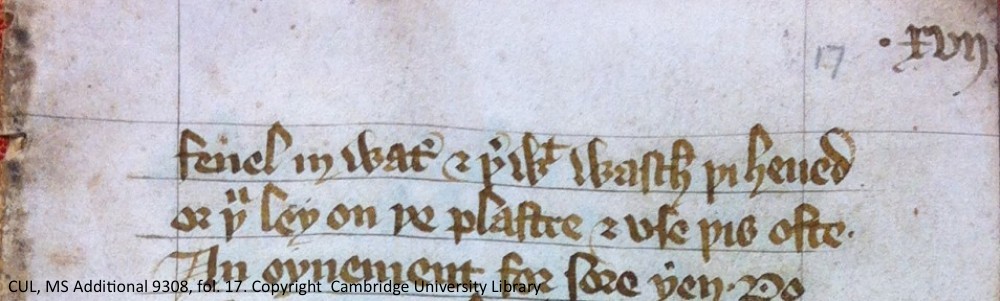 17 · xvij
fenel in wat̉ ⁊ þ̉wt wasch þi heued
or þu ley on þe plastre ⁊ vse þis ofte·
An oynement for sore yen· Do
CUL, MS Additional 9308, fol. 17. Copyright Cambridge University Library